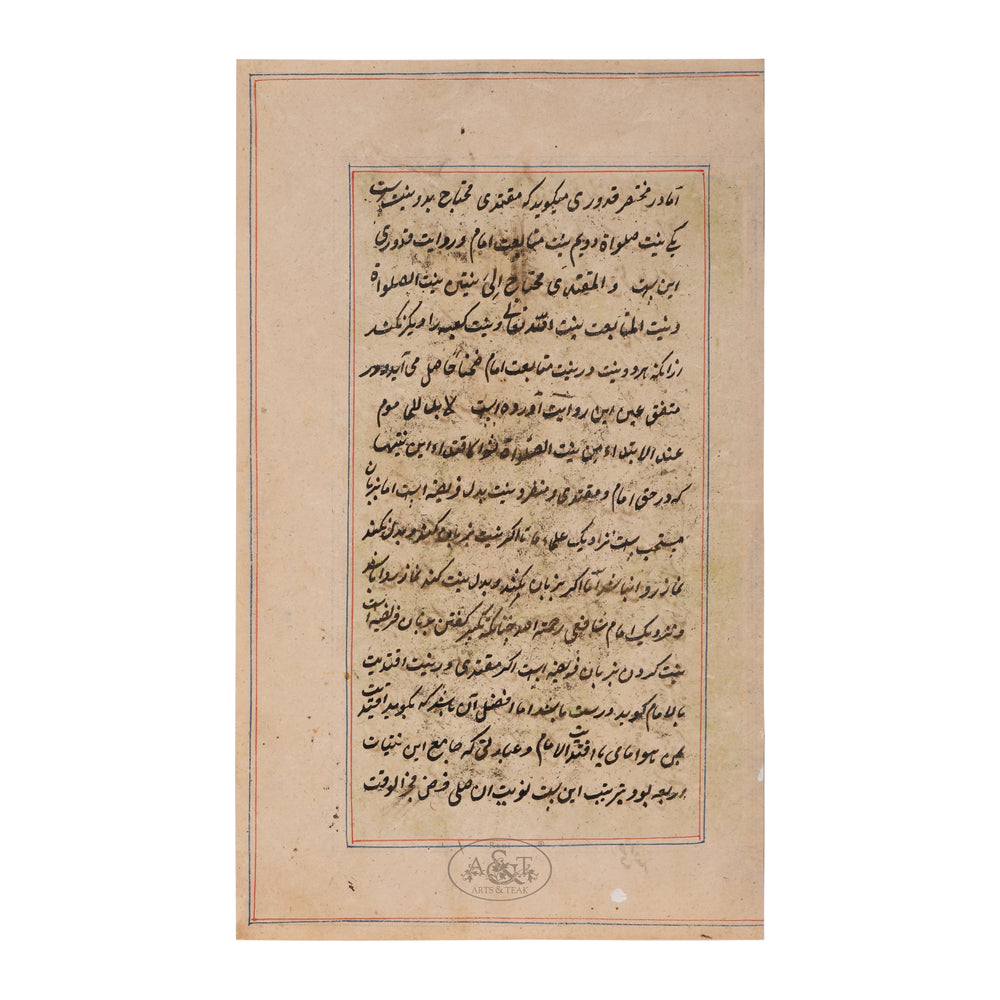 اما در مختصر قدوری میگوید که مقتدی محتاج بدو نیت است
یکی نیت صلواة دویم نیت متابعت امام و روایت قدوری
این است والمقتدی محتاج الی نیتین نیت الصلواة
و نیت المتابعت نیت و نیت کعبه را دیگر نکند
از انکه هر دو نیت در نیت متابعت امام ضمنا حاصل می آید و در
متفق عین این روایت آورده است لابد للموم
عند الابتداء من نیت الصلواة این نیتها
که در حق امام و مقتدی و منفرد نیت بدل فریضه است اما بزبان
مستحب است نزدیک علماء ما تا اگر نیت بزبان کند و بدل نکند
نماز روا نباشد اما اگر بزبان نکند و بدل نیت کند نماز روا باشد
و نزدیک امام شافعی رحمته الله چنانکه تکبیر گفتن بزبان فریضه است
نیت کردن بزبان فریضه است اگر مقتدی در نیت اقتدیت
بالامام گوید درست باشد اما افضل آن باشد که بگوید اقتدیت
بمن هو امامی یا اقتدیت الامام و عبارتی که جامع این نیتیات
اربعه بود بترتیب این است نویت ان اصلی فرض فجر الوقت
Real
A&T
ARTS & TEAK